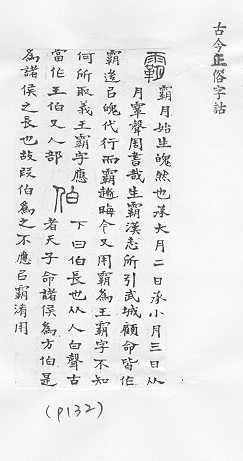 古今正俗字詁
霸 霸月始生魄然也承大月二日承小月三日从
月䨣聲周書哉生霸漢志所引武城顧命皆作
霸迨㠯魄代行而霸遯晦今又用霸為王霸字不知
何所取義王霸字應
當作王伯又人部 伯 下曰伯長也从人白聲古
者天子命諸侯為方伯是
為諸侯之長也故叚伯為之不應㠯霸淆用
(p132)